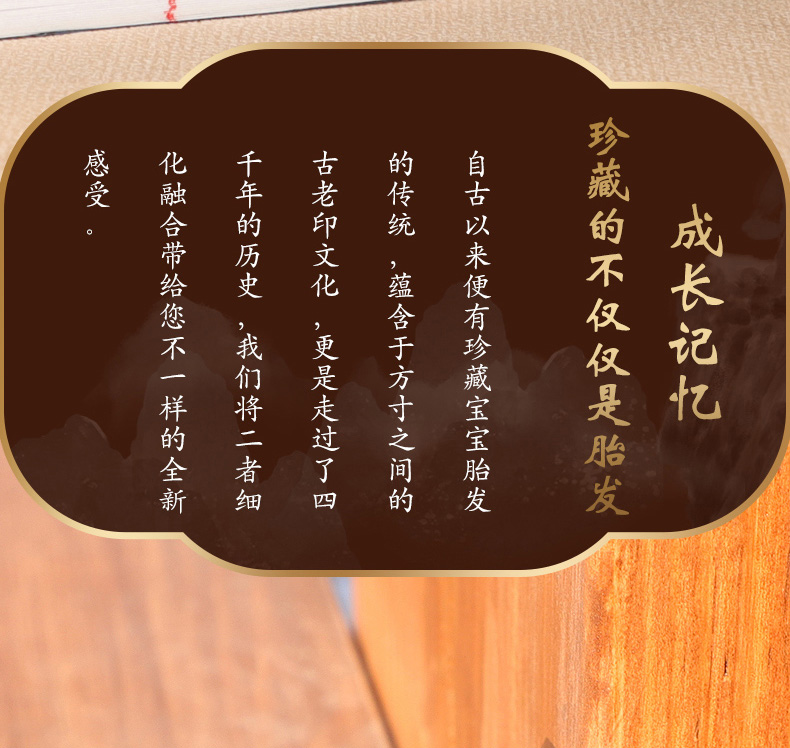 成长记忆
珍藏的不仅仅是胎发
自古以来便有珍藏宝宝胎发
的传统，蕴含于方寸之间的
古老印文化，更是走过了四
千年的历史，我们将二者细
化融合带给您不一样的全新
感受。